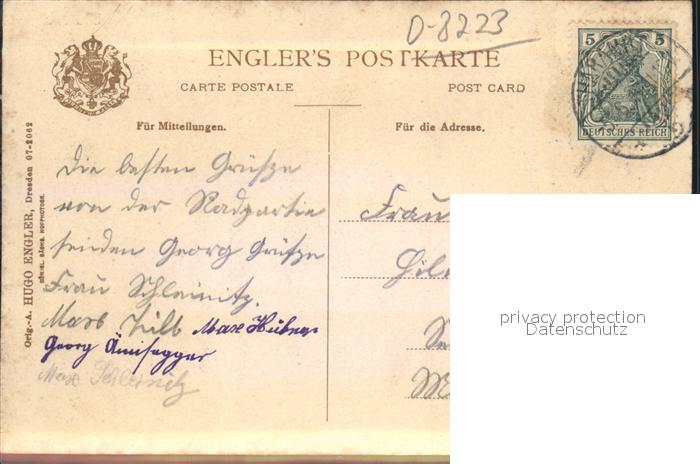 D-8223
ENGLER'S POSTKARTE
CARTE POSTALE POST CARD
Für Mitteilungen. Für die Adresse.
5 5
DEUTSCHES REICH
Orig.-A. HUGO ENGLER, Dresden 07-2062
KÖNIGL. SÄCHS. HOFPHOTOGR.
Die besten Grüße
von der Radpartie
senden Georg Grüße
Frau Schleinitz.
Max Hübner
Georg
Max Schleinitz
Frau
privacy protection
Datenschutz